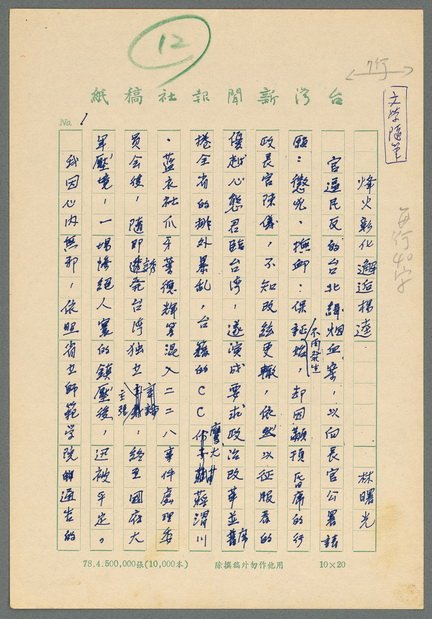 12
7行
台灣新聞報社稿紙
No. 1
文學隨筆
每行40字
烽火彰化邂逅楊逵
林曙光
官逼民反的台北緝烟血案,以向長官公署請
願:懲兇、撫卹;保証不再發生,却因顢頇昏庸的行
政長官陳儀,不知改絃更轍,依然以征服者的
優越心態君臨台灣,遂演成要求政治改革並蓆
捲全省的排外暴亂,台籍的CC鷹犬蔣渭川
、藍衣社爪牙許德輝等混入二二八事件處理委
員會後,隨即誘發台灣獨立言論,終至國府大
軍壓境,一場慘絕人寰的鎮壓後,迅被平定。
我因心內無邪,依照省立師範學院通告的
78.4.500,000張(10,000本)
除撰稿外勿作他用
10×20